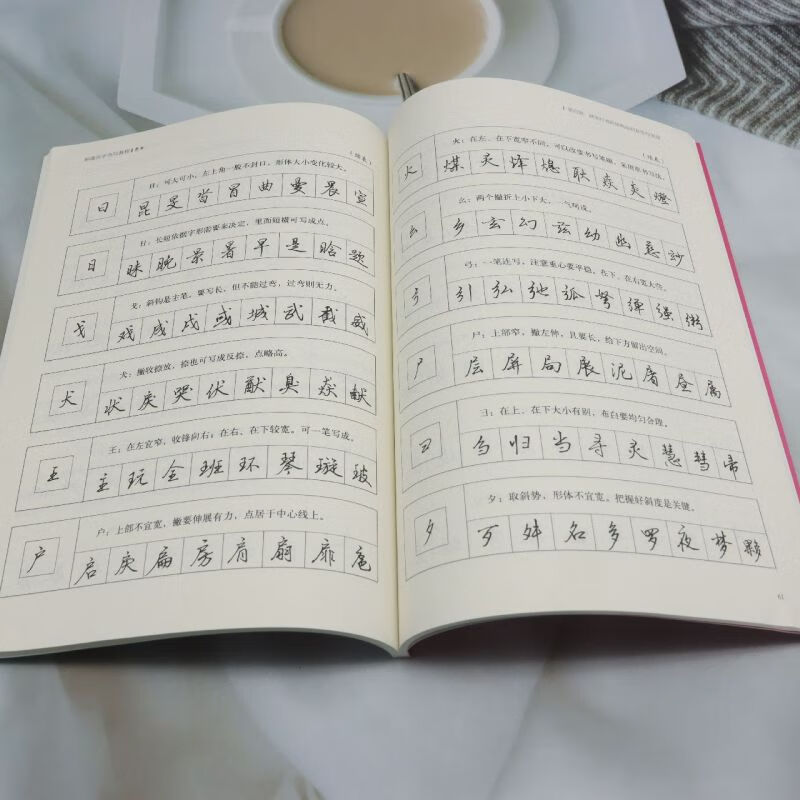 （续表）
曰：可大可小，左上角一般不封口，形体大小变化较大。
曰
昆 旻 沓 冒 曲 曼 晨 宣
日：长短依据字形需要来决定，里面短横可写成点。
日
昧 晚 景 暑 早 是 晗 题
戈：斜钩是主笔，要写长，但不能过弯，过弯则无力。
戈
戏 成 戌 或 城 武 截 威
犬：撇收捺放，捺也可写成反捺，点略高。
犬
状 戾 哭 伏 猷 臭 猋 献
王：在左宜窄，收锋向右；在右、在下较宽。可一笔写成。
王
主 玩 全 班 环 琴 璇 玻
户：上部不宜宽，撇要伸展有力，点居于中心线上。
户
启 戾 扁 房 肩 扇 扉 扈
（续表）
火：在左、在下宽窄不同，可以改变书写笔顺，采用草书写法。
火
煤 灵 烽 熄 耿 焱 美 燈
幺：两个撇折上小下大，一气呵成。
幺
乡 玄 幻 兹 幼 幽 慈 纱
弓：一笔连写，注意重心要平稳，在下、在右宽大些。
弓
引 弘 弛 弧 弩 弹 强 粥
尸：上部窄，撇左伸，且要长，给下方留出空间。
尸
层 屏 局 展 泥 屠 昼 属
彐：在上、在下大小有别，布白要均匀合理。
彐
刍 归 当 寻 灵 慧 彗 帚
夕：取斜势，形体不宜宽。把握好斜度是关键。
夕
歹 舛 名 多 罗 夜 梦 夥
61